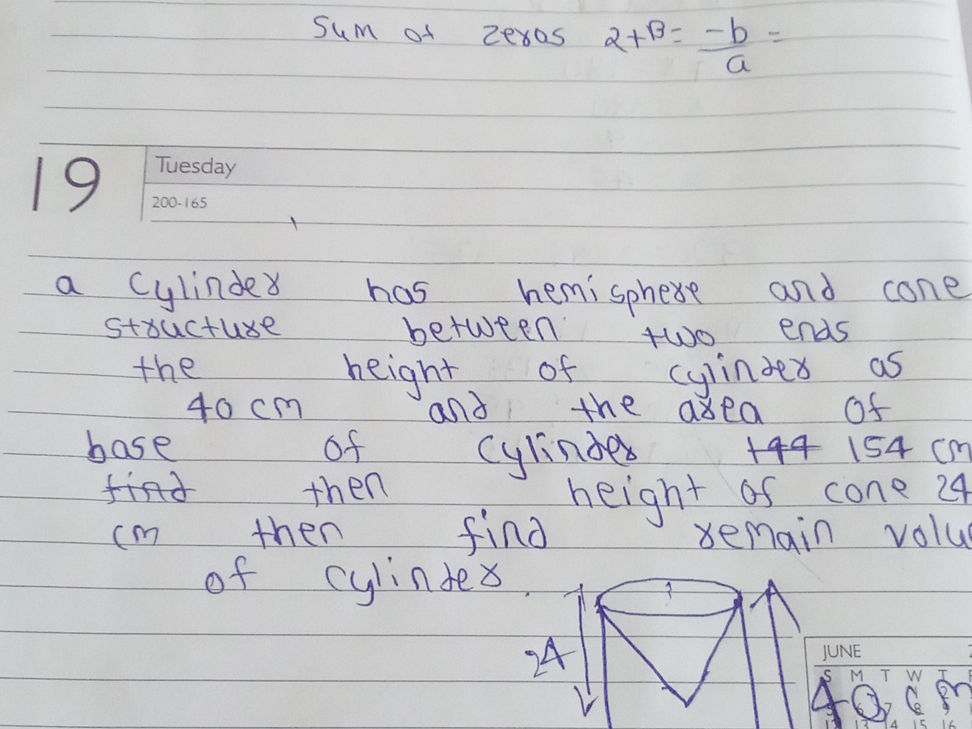 Sum of zeros 2+β = -b/a =
19 Tuesday
200-165
a cylinder has hemisphere and cone
structure between two ends
the height of cylinder as
40 cm and the area of
base of cylinder 144 154 cm
find then height of cone 24
cm then find remain volu
of cylinder.
24
JUNE
S M T W T
40 cm